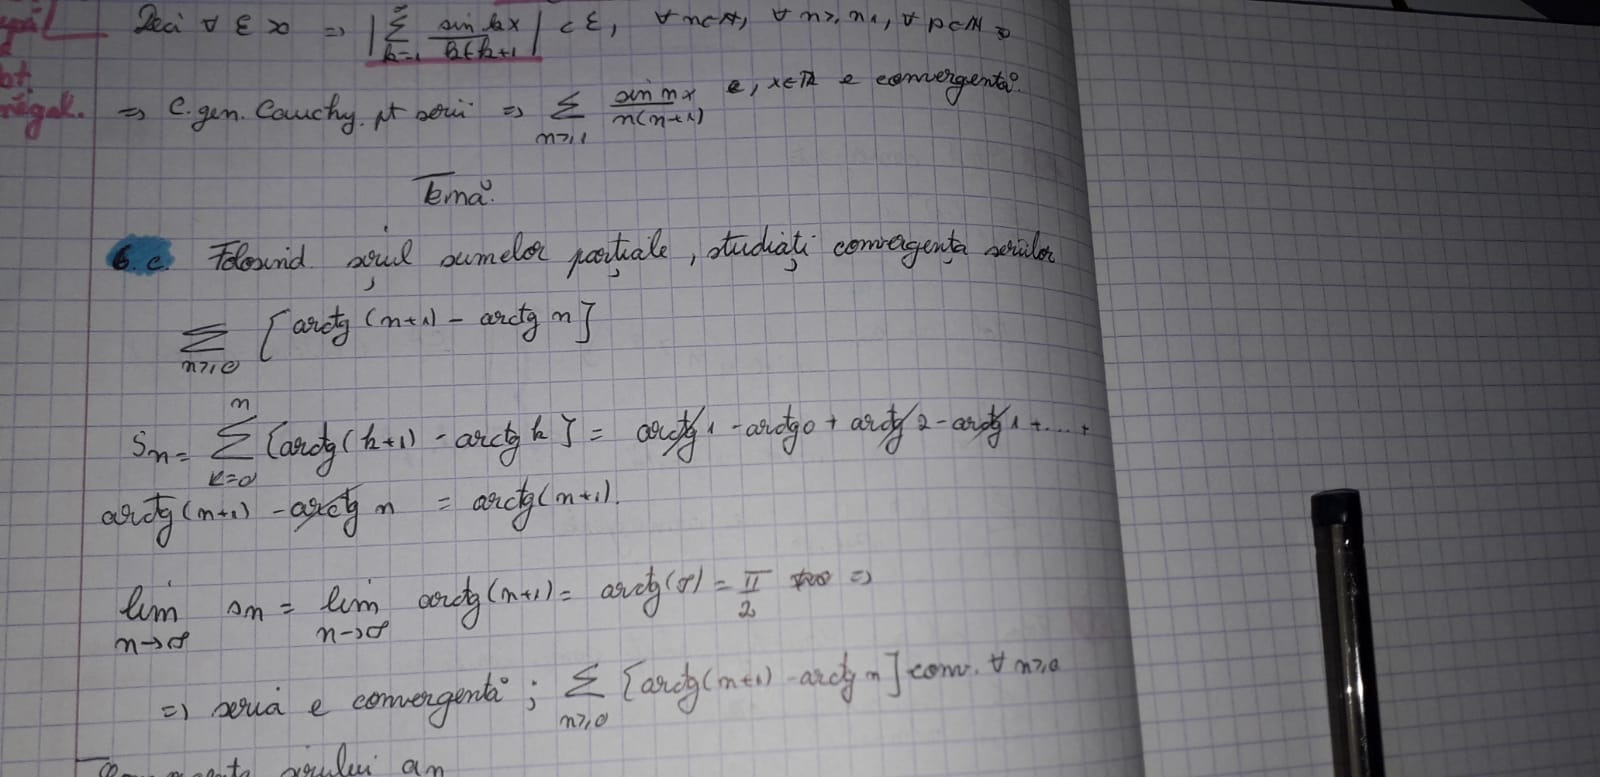 Deci ∀ ε >0 => |∑ k=1 sin kx / k(k+1)| < ε, ∀ n∈N, ∀ n≥n₁, ∀ p∈N
=> C. gen. Cauchy. pt serii => ∑ n≥1 sin nx / n(n+1) e, x∈R e convergentă
régak.
Temă.
6. c. Folosind șirul sumelor parțiale, studiați convergența seriilor
∑ n≥0 [arctg (n+1) - arctg n]
Sn = ∑ k=0 n [arctg(k+1) - arctg k] = arctg 1 - arctg 0 + arctg 2 - arctg 1 + .... +
arctg (n+1) - arctg n = arctg (n+1).
lim n→∞ sn = lim n→∞ arctg(n+1) = arctg(∞) = π/2 =>
=> seria e convergentă ; ∑ n≥0 [arctg(n+1) - arctg n] conv. ∀ n≥0
șirului an